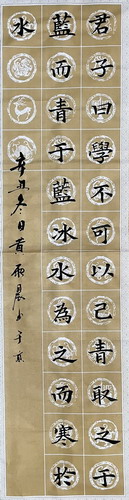 君子曰學不可以已青取之于
藍而青于藍冰水為之而寒於
水
辛丑冬日黄雨晨书于